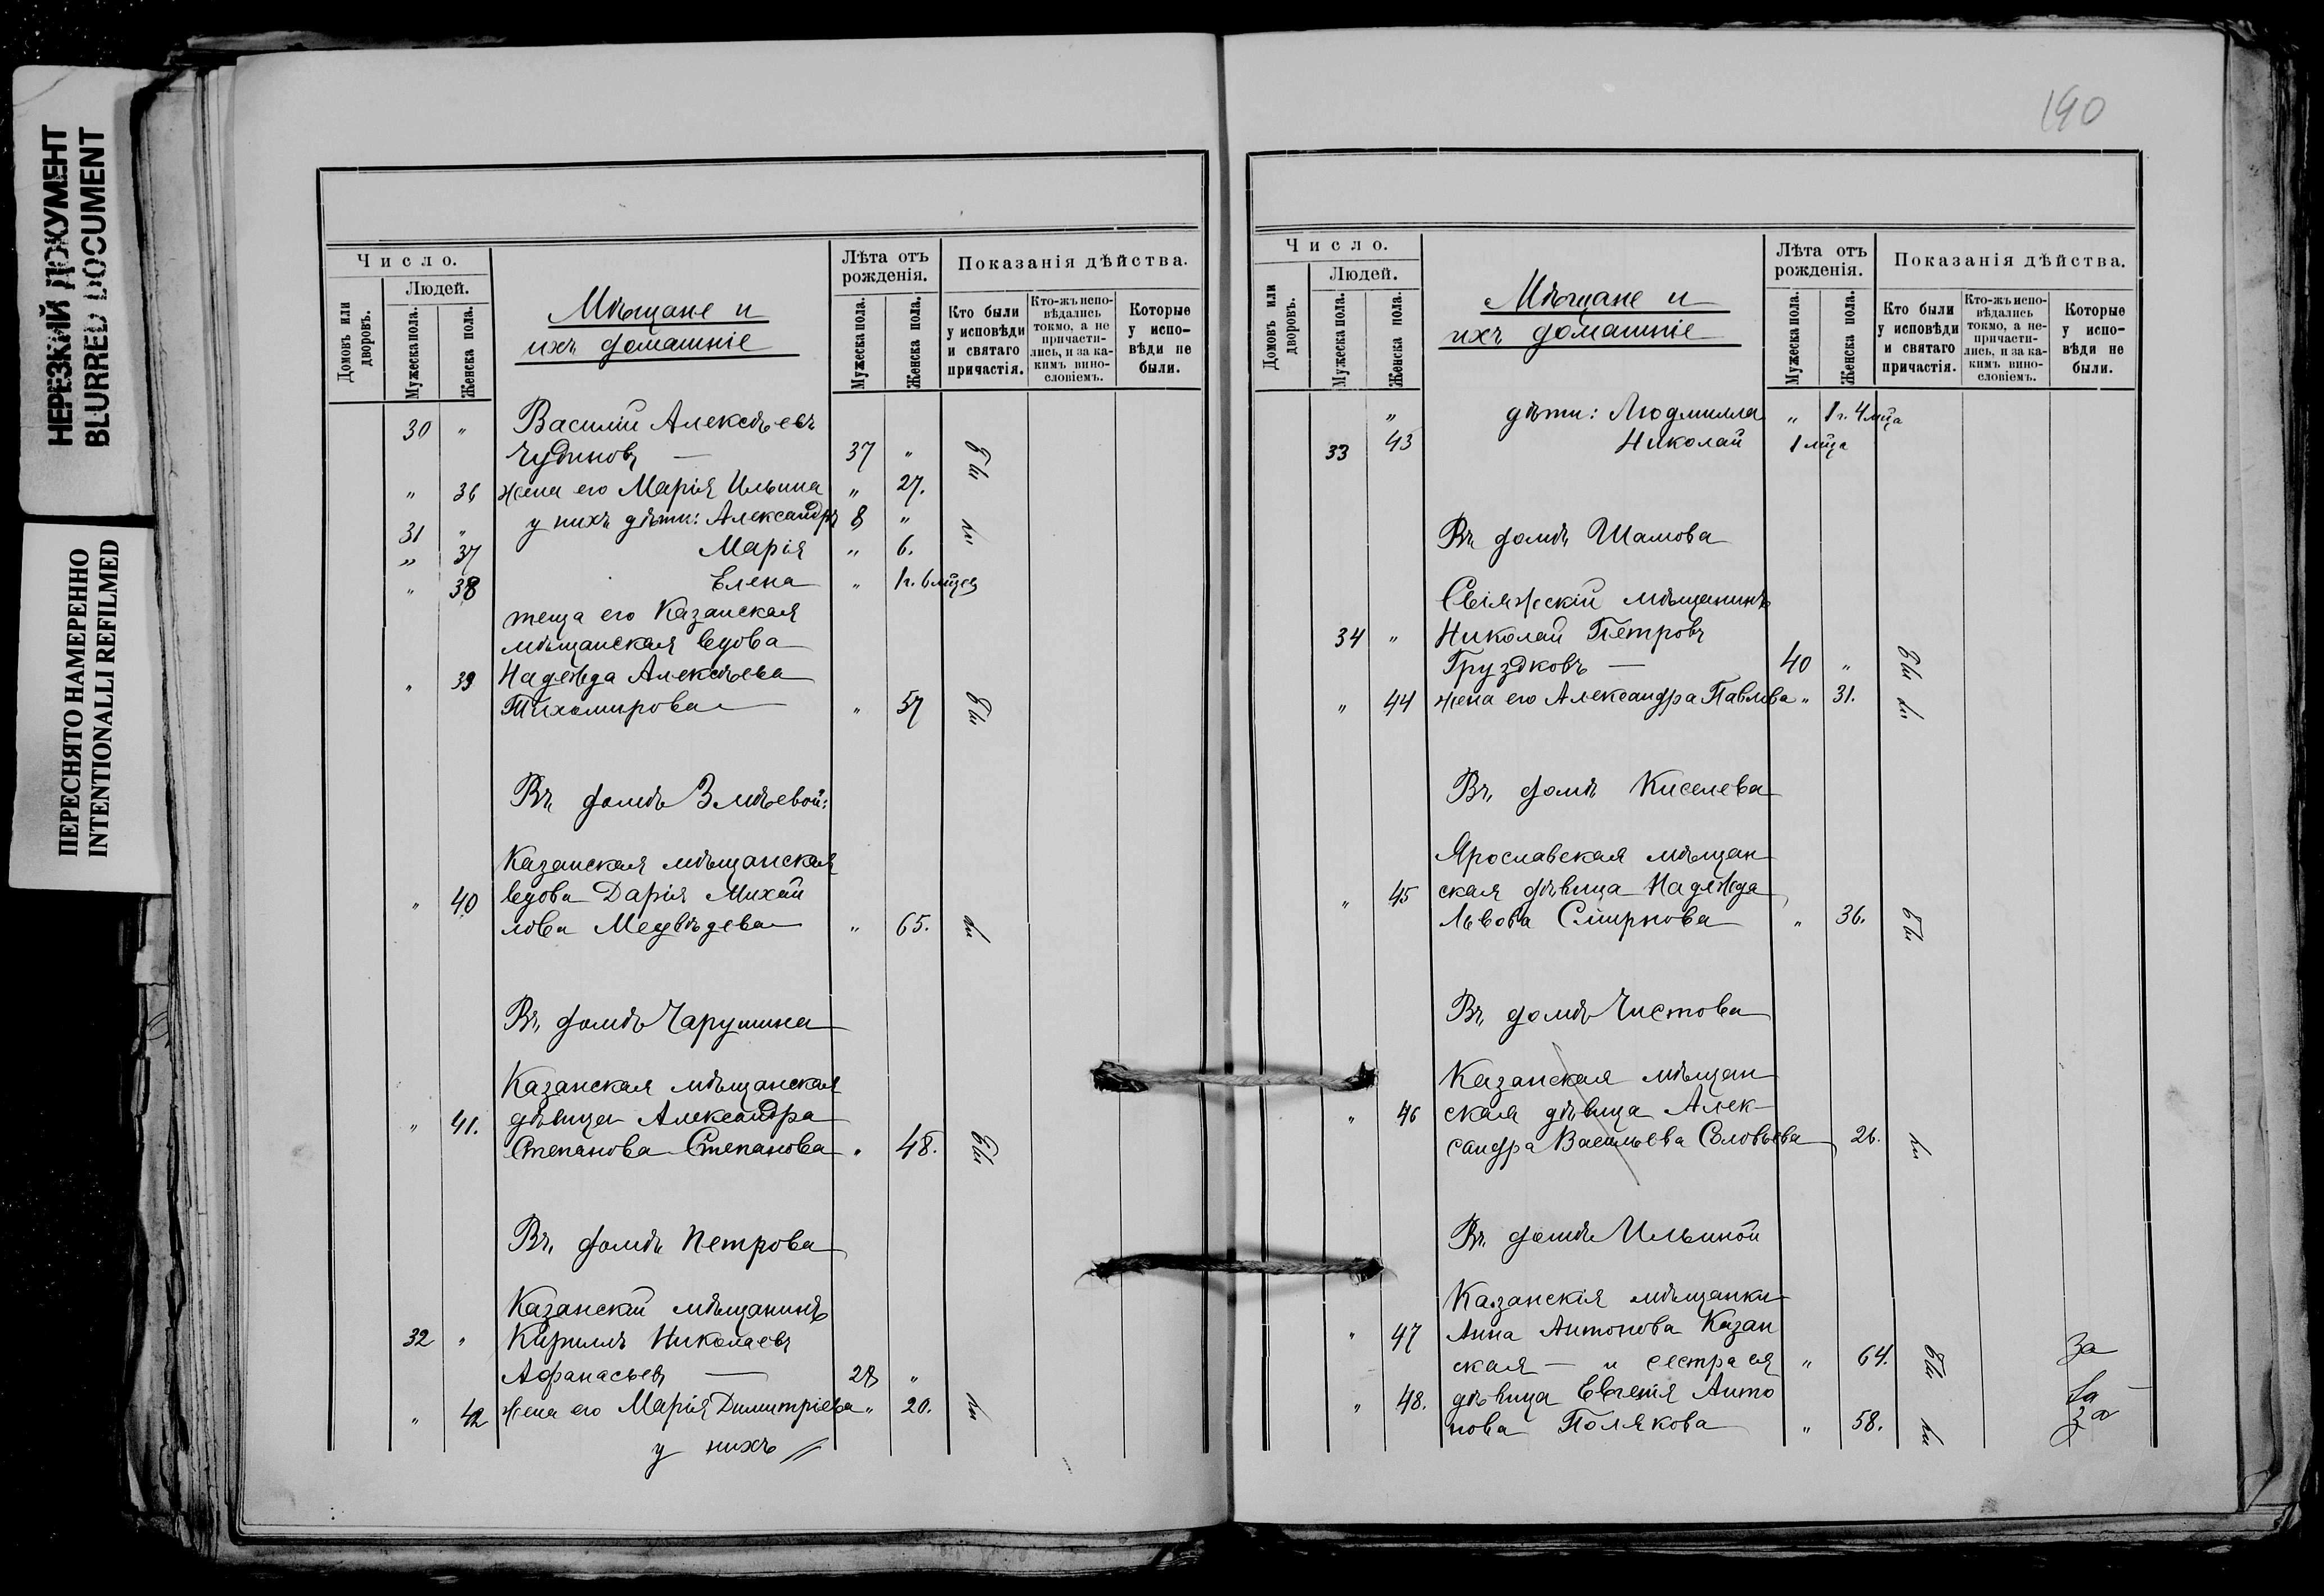 НЕРЕЗКИЙ ДОКУМЕНТ
BLURRED DOCUMENT
ПЕРЕСНЯТО НАМЕРЕННО
INTENTIONALLI REFILMED
Число.
Людей.
Домовъ или дворовъ.
Мужеска пола.
Женска пола.
Мѣщане и
ихъ домашніе
Лѣта отъ рожденія.
Мужеска пола.
Женска пола.
Показанія дѣйства.
Кто были у исповѣди и святаго причастія.
Кто-жъ исповѣдались токмо, а не причастились, и за какимъ винословіемъ.
Которые у исповѣди не были.
30 " Василій Алексѣевъ
Чудиновъ — 37 "
" 36 жена его Марія Ильина " 27.
31 " у нихъ дѣти: Александръ 8 "
" 37 Марія " 6.
" 38 Елена " 1 г. 6 мцев
теща его Казанская
мѣщанская вдова
" 39 Надежда Алексѣева
Тихомирова " 57
Въ домѣ Змѣевой:
Казанская мѣщанская
" 40 вдова Дарія Михай
лова Медвѣдева " 65.
Въ домѣ Чарушина
Казанская мѣщанская
" 41. дѣвица Александра
Степанова Степанова " 48.
Въ домѣ Петрова
Казанскій мѣщанинъ
32 " Кириллъ Николаевъ
Афанасьевъ — 28 "
" 42 жена его Марія Димитріева " 20.
у нихъ
190
Число.
Людей.
Домовъ или дворовъ.
Мужеска пола.
Женска пола.
Мѣщане и
ихъ домашніе
Лѣта отъ рожденія.
Мужеска пола.
Женска пола.
Показанія дѣйства.
Кто были у исповѣди и святаго причастія.
Кто-жъ исповѣдались токмо, а не-причастились, и за какимъ винословіемъ.
Которые у исповѣди не были.
" 43 дѣти: Людмилла " 1 г. 4 мца
33 Николай 1 мца
Въ домѣ Шамова
Свіяжскій мѣщанинъ
34 " Николай Петровъ
Груздковъ — 40 "
" 44 жена его Александра Павлова " 31.
Въ домѣ Киселева
Ярославская мѣщан
" 45 ская дѣвица Надежда
Львова Смирнова " 36.
Въ домѣ Чистова
Казанская мѣщан
" 46 ская дѣвица Алек-
сандра Васильева Соловьева 26.
Въ домѣ Ильиной
Казанскія мѣщанки
" 47 Анна Антонова Казан
ская — и сестра ея " 64. за
" 48. дѣвица Евгенія Анто
нова Полякова " 58. за